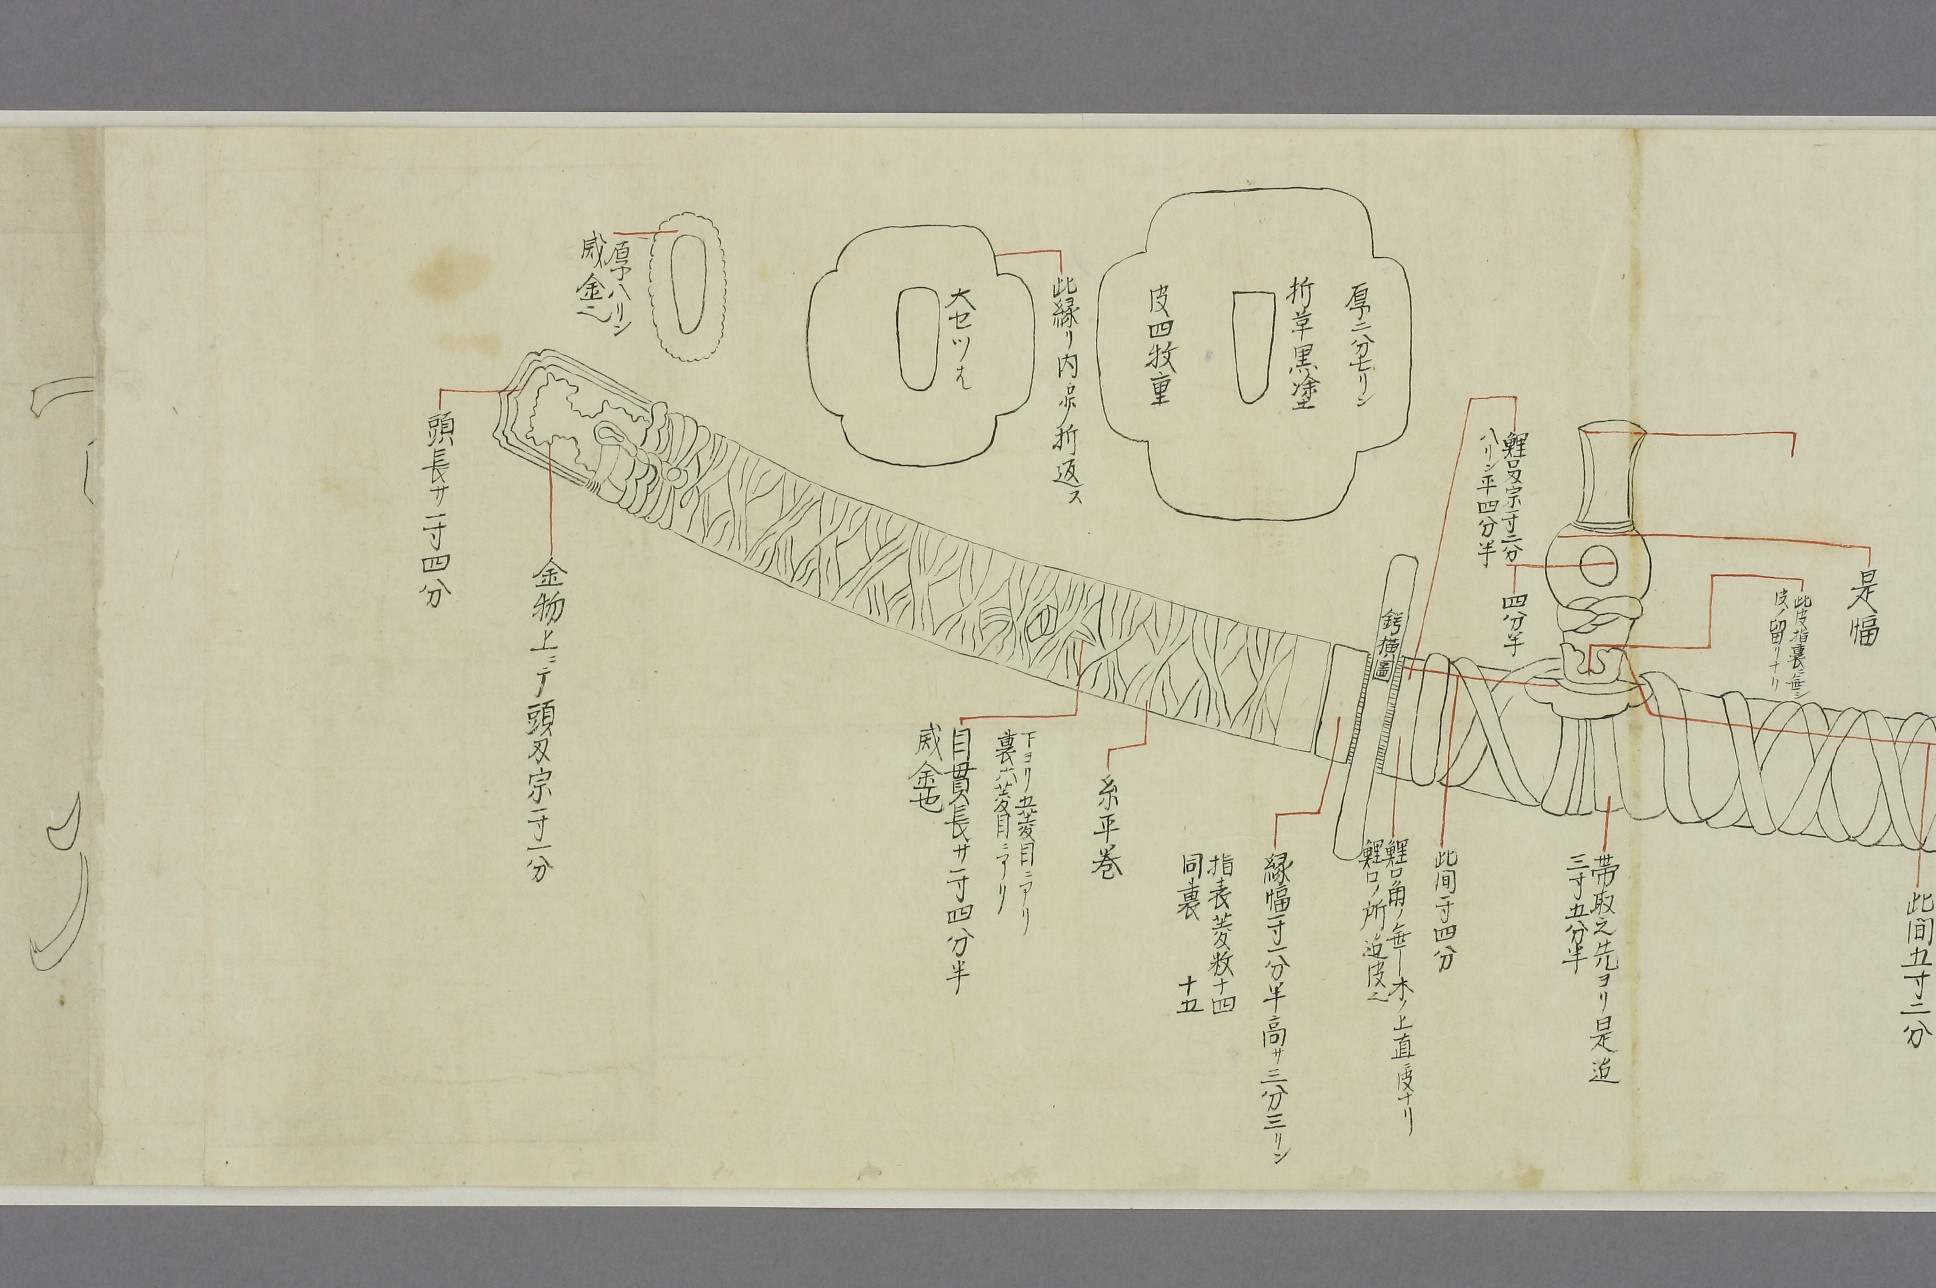 此間五寸二分
是幅
此皮指裏ニ無シ
皮ノ留リナリ
帯取之先ヨリ是迠
三寸五分半
鯉口刃宗一寸二分
八リン平四分半
四分半
此間一寸四分
鯉口角ノ無 木ノ上直ニ皮ナリ
鯉口ノ所迠皮之
鍔横圖
厚二分七リン
折草黒塗
皮四枚重
縁幅一寸一分半高サ三分三リン
指表菱数十四
同裏 十五
糸平巻
此縁リ内 折返ス
大セツハ
下ヨリ五菱目ニアリ
裏六菱目ニアリ
目貫長サ一寸四分半
威金也
厚八リン
威金之
金物上ニテ頭刃宗一寸一分
頭長サ一寸四分